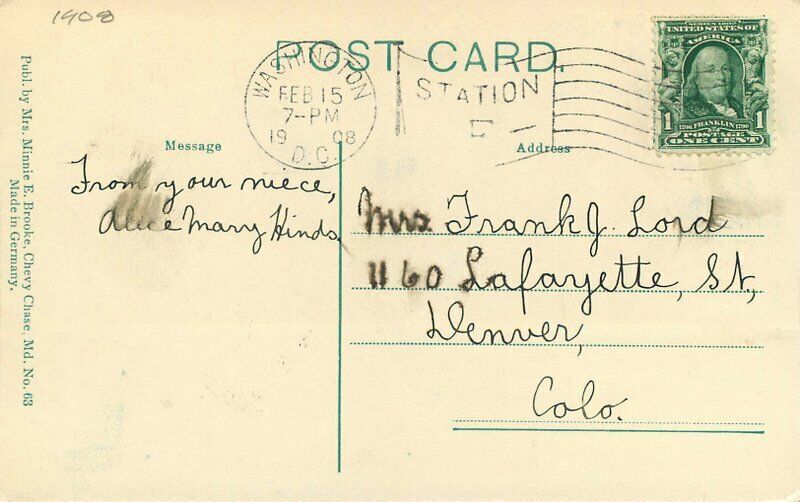 1908
POST CARD.
WASHINGTON
FEB 15
7-PM
19 08
D.C.
STATION
SERIES 1902
UNITED STATES OF
AMERICA
1 1
1706 FRANKLIN 1790
POSTAGE
ONE CENT
Message
Address
From your niece,
Alice Mary Hinds.
Mrs. Frank J. Lord
1160 Lafayette, St,
Denver,
Colo.
Publ. by Mrs. Minnie E. Brooke, Chevy Chase, Md. No. 63
Made in Germany.